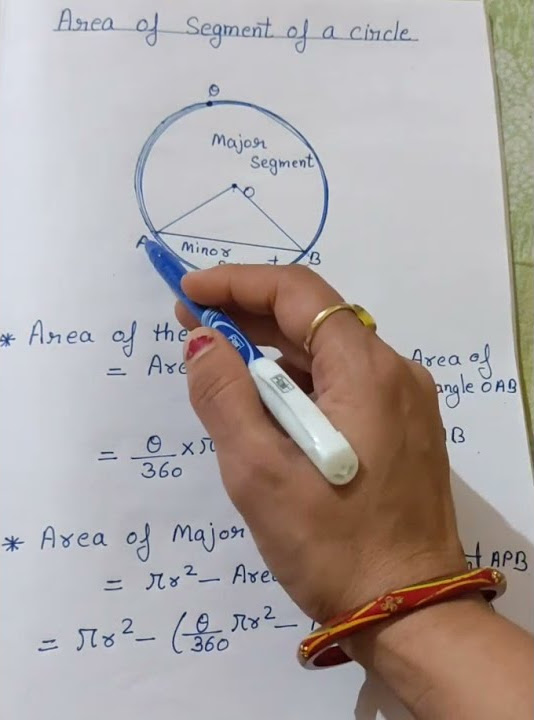 Area of Segment of a circle
Q
Major
Segment
O
A
Minor
B
* Area of the
= Are Area of
angle OAB
= θ/360 × π B
* Area of Major
= πr² - Area APB
= πr² - (θ/360 πr² -